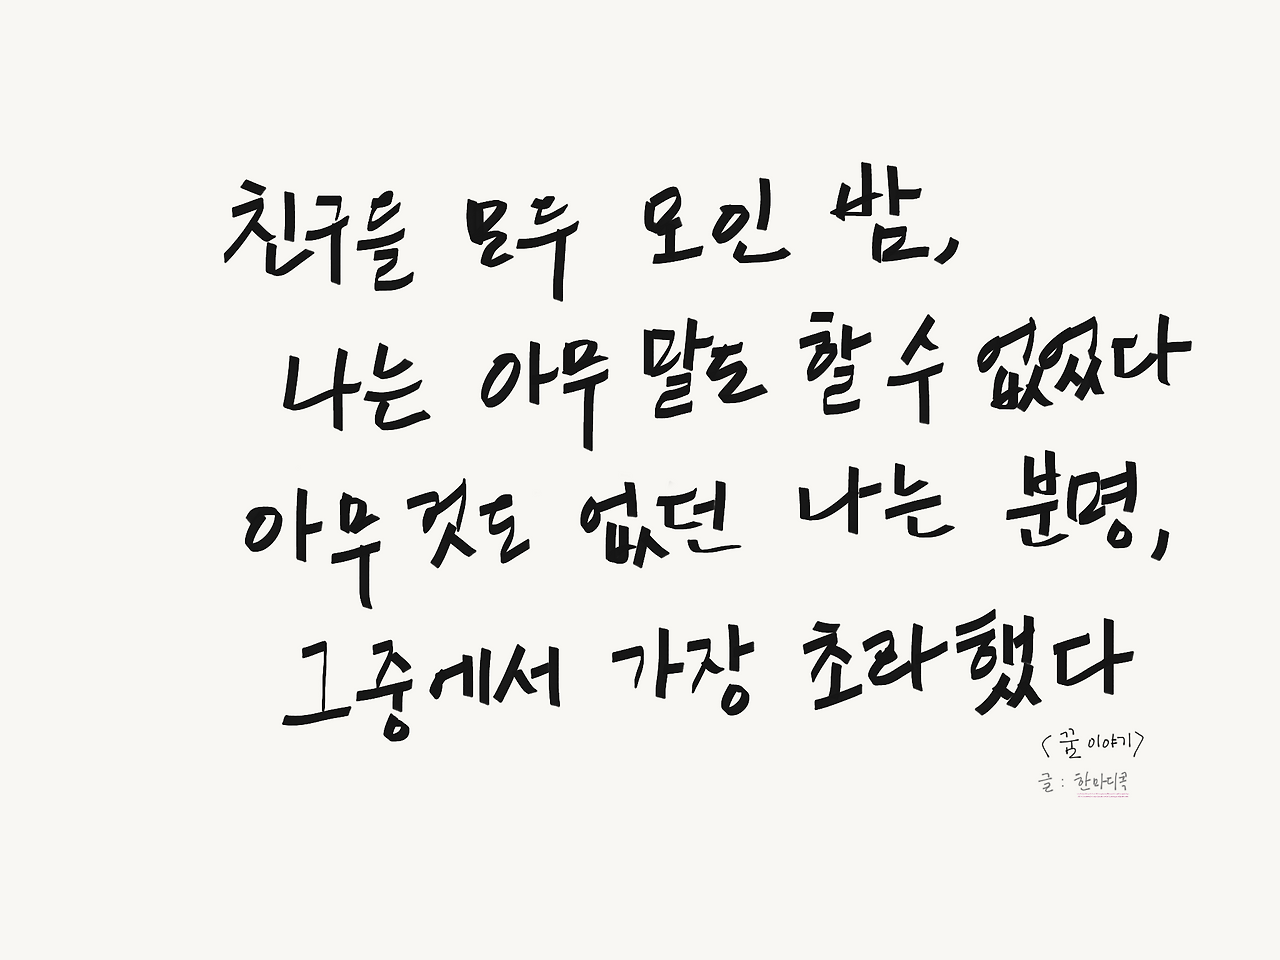 친구들 모두 모인 밤,
나는 아무 말도 할 수 없었다
아무것도 없던 나는 분명,
그중에서 가장 초라했다
<꿈 이야기>
글 : 한마디콕